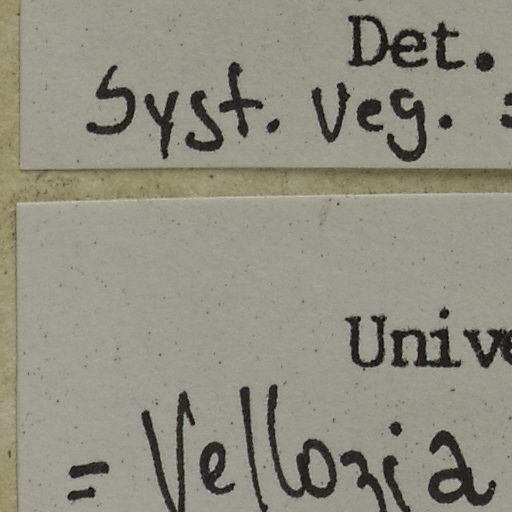 Det.
Syst. Veg. :
Unive
= Vellozia